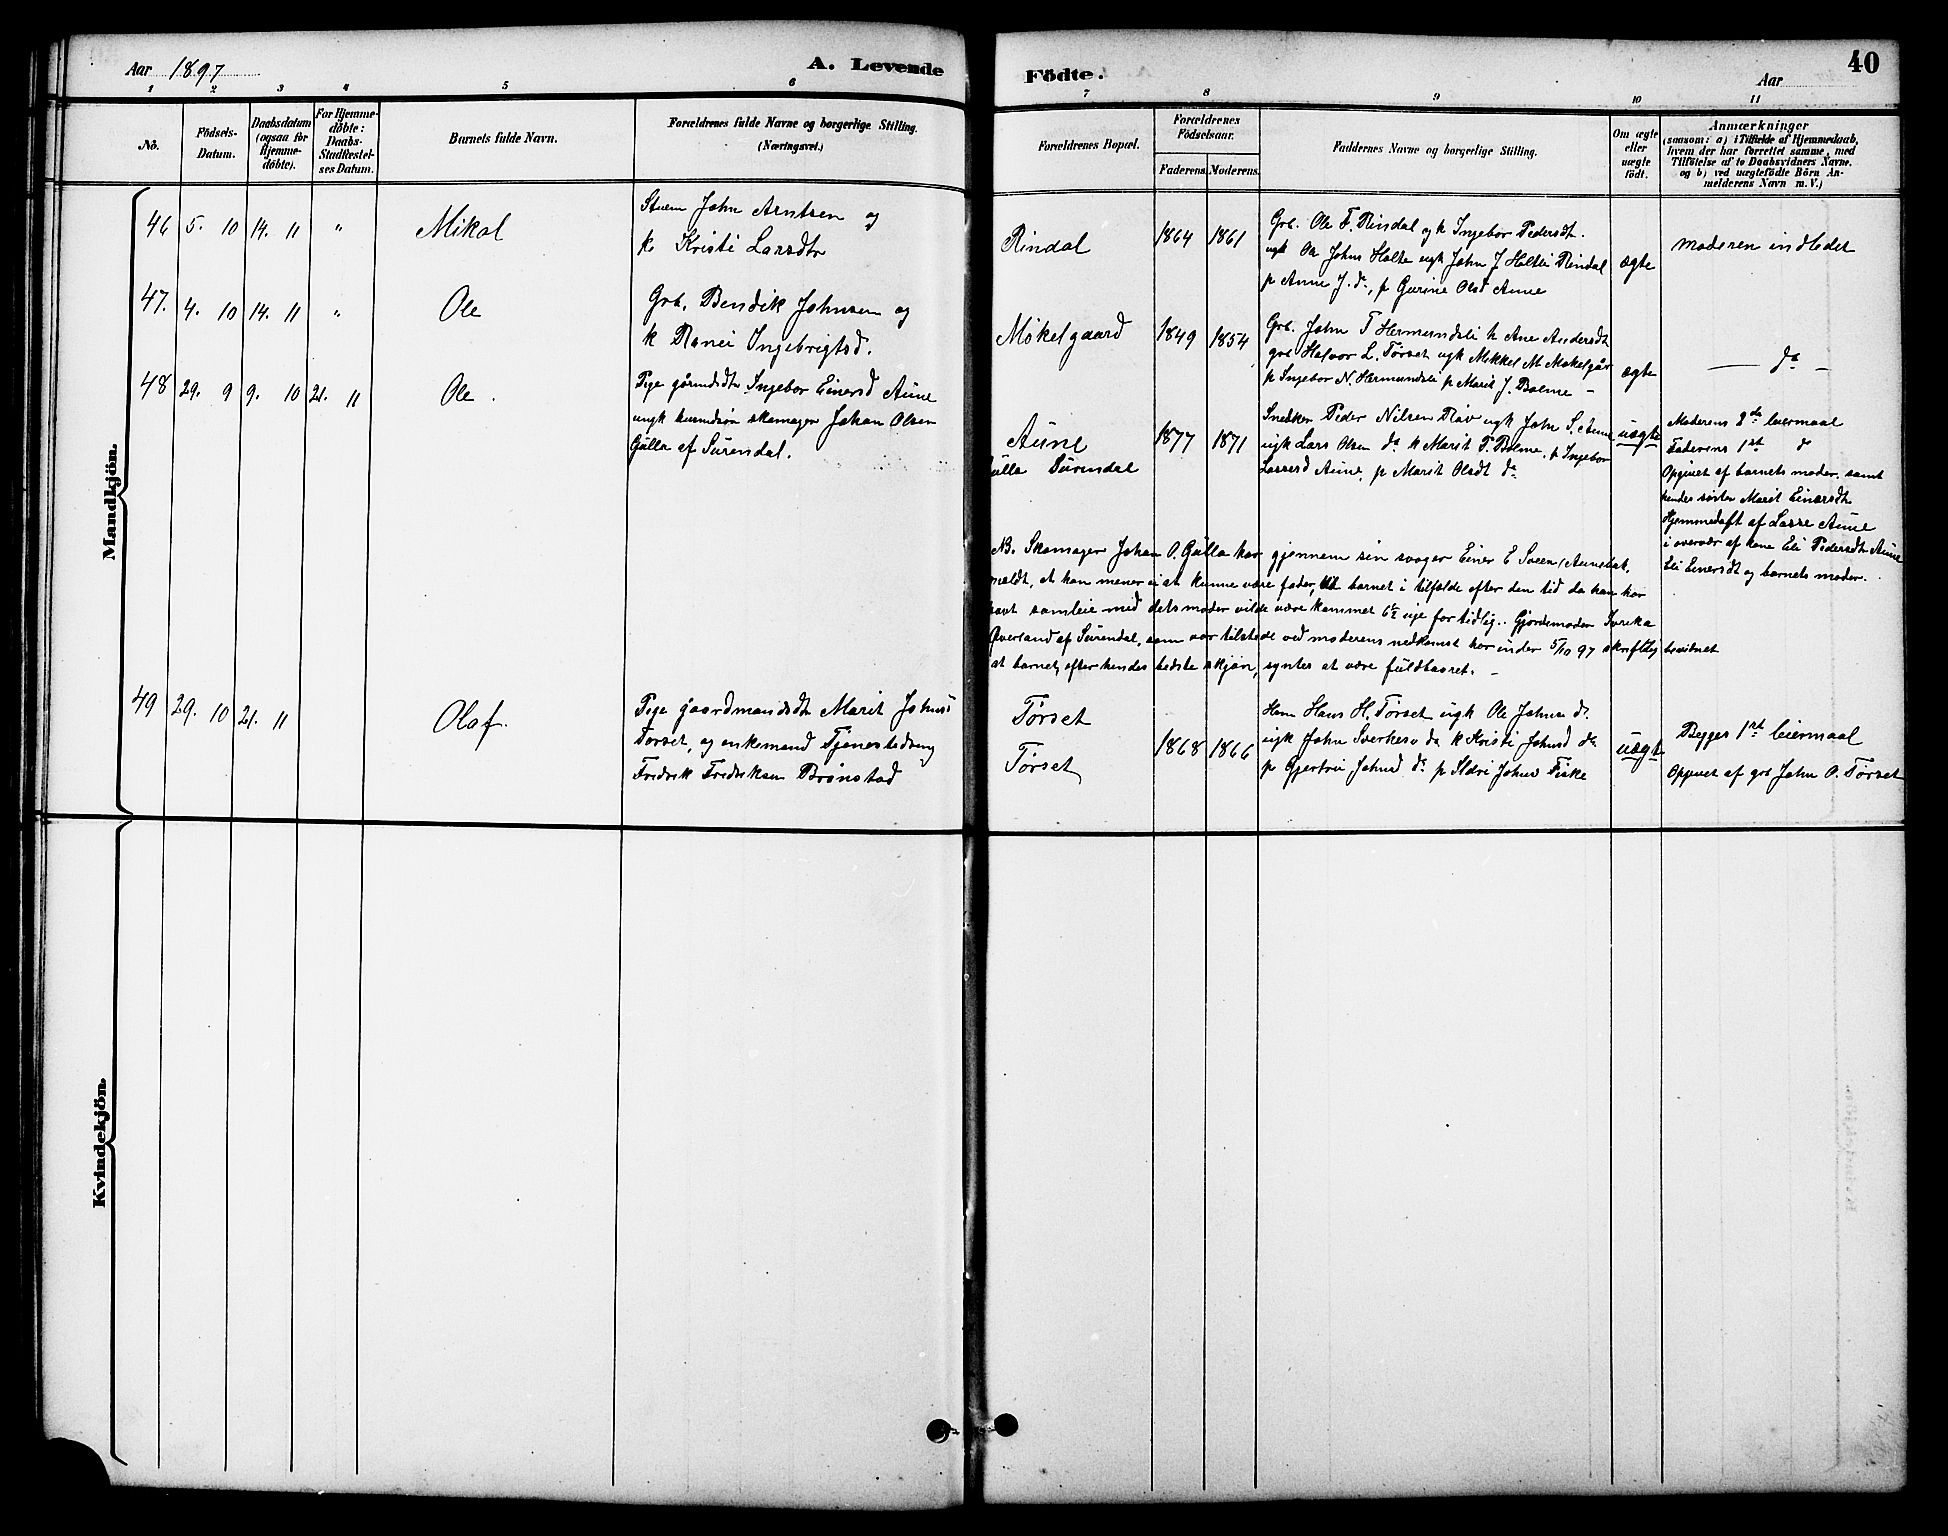 Aar 1897
A. Levende
Födte.
Aar
40
1 2 3 4 5 6 7 8 9 10 11
No.
Födsels-
Datum.
Daabsdatum
(ogsaa for
Hjemme-
döbte).
For Hjemme-
döbte:
Daabs-
Stadfæstel-
ses Datum.
Barnets fulde Navn.
Forældrenes fulde Navne og borgerlige Stilling.
(Næringsvei.)
Forældrenes Bopæl.
Forældrenes
Födselsaar.
Faderens. Moderens.
Faddernes Navne og borgerlige Stilling.
Om ægte
eller
uægte
födt.
Anmærkninger
(saasom: a) i Tilfælde af Hjemmedaab,
hvem der har forrettet samme, med
Tilföielse af to Daabsvidners Navne.
og b) ved uægtefödte Börn An-
melderens Navn m. V.)
Mandkjön.
46 5. 10 14. 11 " Mikal
John Arntsen og
k Kristi Larsdtr
Rindal 1864 1861
Grb. Ole F. Rindal og k Ingebor Pedersdt.
ugk Ola Johns Halte ugk John J Halte Rindal
p Anne J. do, p Gurine Olsd Aune
ægte
moderen indledet
47. 4. 10 14. 11 " Ole
Grb. Bendik Johnsen og
k Ranei Ingebrigtsd.
Mökelgaard 1849 1854
Grb. John T Hermundsli k Ane Andersdt
grb Halvor L. Törset ugk Mikkel M Mökelgår
p Ingebor N. Hermundsli p Marit J. Bolme –
ægte
— do –
48 29. 9 9. 10 21. 11 Ole.
Pige gårmdsdtr Ingebor Einersd Aune
ungk husmdsön skomager Johan Olsen
Gulla af Surendal.
Aune
Gulla Surendal
1877 1871
Snekker Peder Nilsen Röv ugk John S. Aune
ugk Lars Olsen do k Marit P. Bolme, p Ingebor
Larsesd Aune, p Marit Olsdt do
uægte
Moderens 2de leiermaal
Faderens 1st do
Opgivet af barnets moder, samt
hendes söster Marit Einersdt
Hjemmedöft af Lasse Aune
i overvær af kone Eli Pedersdt Aune
Eli Einersdt og barnets moder.
NB. Skomager Johan O. Gulla har gjennem sin svager Einer E Sveen
meldt, at han mener ei at kunne være fader, da barnet i tilfælde efter den tid da han har
havt samleie med dets moder vilde være kommet 6½ uge for tidlig.. Gjordemoder
Överland af Surendal, som var tilstede ved moderens nedkomst har under 5/10 97 skriftlig bevidnet
at barnet, efter hendes bedste skjön, syntes at være fuldbaaret. –
49 29. 10 21. 11 Olaf.
Pige gaardmandsdt Marit Johns
Törset, og enkemand
Fredrik Fredriksen Brönstad
Törset
Törset
1868 1866
Hans H. Törset ugk Ole Johns do.
ugk John Sverkesv do k Kristi Johnsd do
p Gjertrui Johnsd do p Sldri Johnsd Fiske
uægt
Begges 1st leiermaal
Opgivet af grb John O. Törset
Kvindekjön.